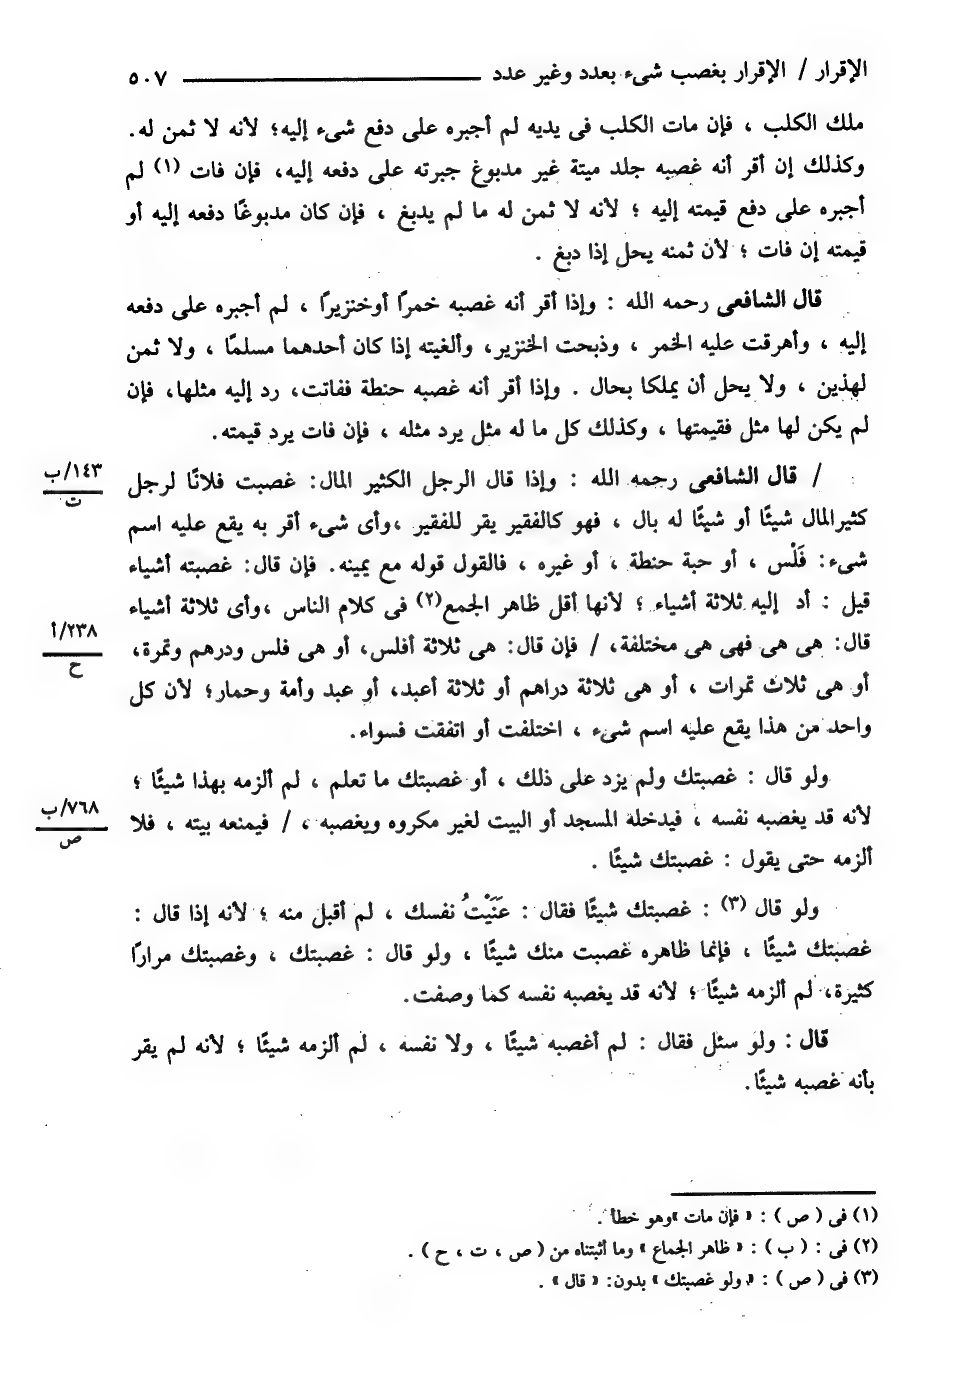 الإقرار / الإقرار بغصب شىء بعدد وغير عدد ـــــــــــــــــ ٥٠٧
ملك الكلب ، فإن مات الكلب فى يديه لم أجبره على دفع شىء إليه؛ لأنه لا ثمن له.
وكذلك إن أقر أنه غصبه جلد ميتة غير مدبوغ جبرته على دفعه إليه، فإن فات (١) لم
أجبره على دفع قيمته إليه ؛ لأنه لا ثمن له ما لم يدبغ ، فإن كان مدبوغًا دفعه إليه أو
قيمته إن فات ؛ لأن ثمنه يحل إذا دبغ .
قال الشافعى رحمه الله : وإذا أقر أنه غصبه خمرًا أوخنزيرًا ، لم أجبره على دفعه
إليه ، وأهرقت عليه الخمر ، وذبحت الخنزير، وألغيته إذا كان أحدهما مسلمًا ، ولا ثمن
لهذين ، ولا يحل أن يملكا بحال . وإذا أقر أنه غصبه حنطة ففاتت، رد إليه مثلها، فإن
لم يكن لها مثل فقيمتها ، وكذلك كل ما له مثل يرد مثله ، فإن فات يرد قيمته.
/ قال الشافعى رحمه الله : وإذا قال الرجل الكثير المال: غصبت فلانًا لرجل
١٤٣/ب
ت
كثيرالمال شيئًا أو شيئًا له بال ، فهو كالفقير يقر للفقير ،وأى شىء أقر به يقع عليه اسم
شىء: فَلْس ، أو حبة حنطة ، أو غيره ، فالقول قوله مع يمينه. فإن قال: غصبته أشياء
قيل : أد إليه ثلاثة أشياء ؛ لأنها أقل ظاهر الجمع(٢) فى كلام الناس ،وأى ثلاثة أشياء
قال: هى هى فهى هى مختلفة، / فإن قال: هى ثلاثة أفلس، أو هى فلس ودرهم وتمرة،
٢٣٨/أ
ح
أو هى ثلاث تمرات ، أو هى ثلاثة دراهم أو ثلاثة أعبد، أو عبد وأمة وحمار؛ لأن كل
واحد من هذا يقع عليه اسم شىء ، اختلفت أو اتفقت فسواء.
ولو قال : غصبتك ولم يزد على ذلك ، أو غصبتك ما تعلم ، لم ألزمه بهذا شيئًا ؛
لأنه قد يغصبه نفسه ، فيدخله المسجد أو البيت لغير مكروه ويغصبه ، / فيمنعه بيته ، فلا
٧٦٨/ب
ص
ألزمه حتى يقول : غصبتك شيئًا .
ولو قال (٣) : غصبتك شيئًا فقال : عَنَيْتُ نفسك ، لم أقبل منه ؛ لأنه إذا قال :
غصبتك شيئًا ، فإنما ظاهره غصبت منك شيئًا ، ولو قال : غصبتك ، وغصبتك مرارًا
كثيرة، لم ألزمه شيئًا ؛ لأنه قد يغصبه نفسه كما وصفت.
قال : ولو سئل فقال : لم أغصبه شيئًا ، ولا نفسه ، لم ألزمه شيئًا ؛ لأنه لم يقر
بأنه غصبه شيئًا.
(١) فى ( ص ) : « فإن مات »وهو خطأ .
(٢) فى : ( ب ) : « ظاهر الجماع » وما أثبتناه من ( ص ، ت ، ح ) .
(٣) فى ( ص ) : « ولو غصبتك » بدون: « قال » .